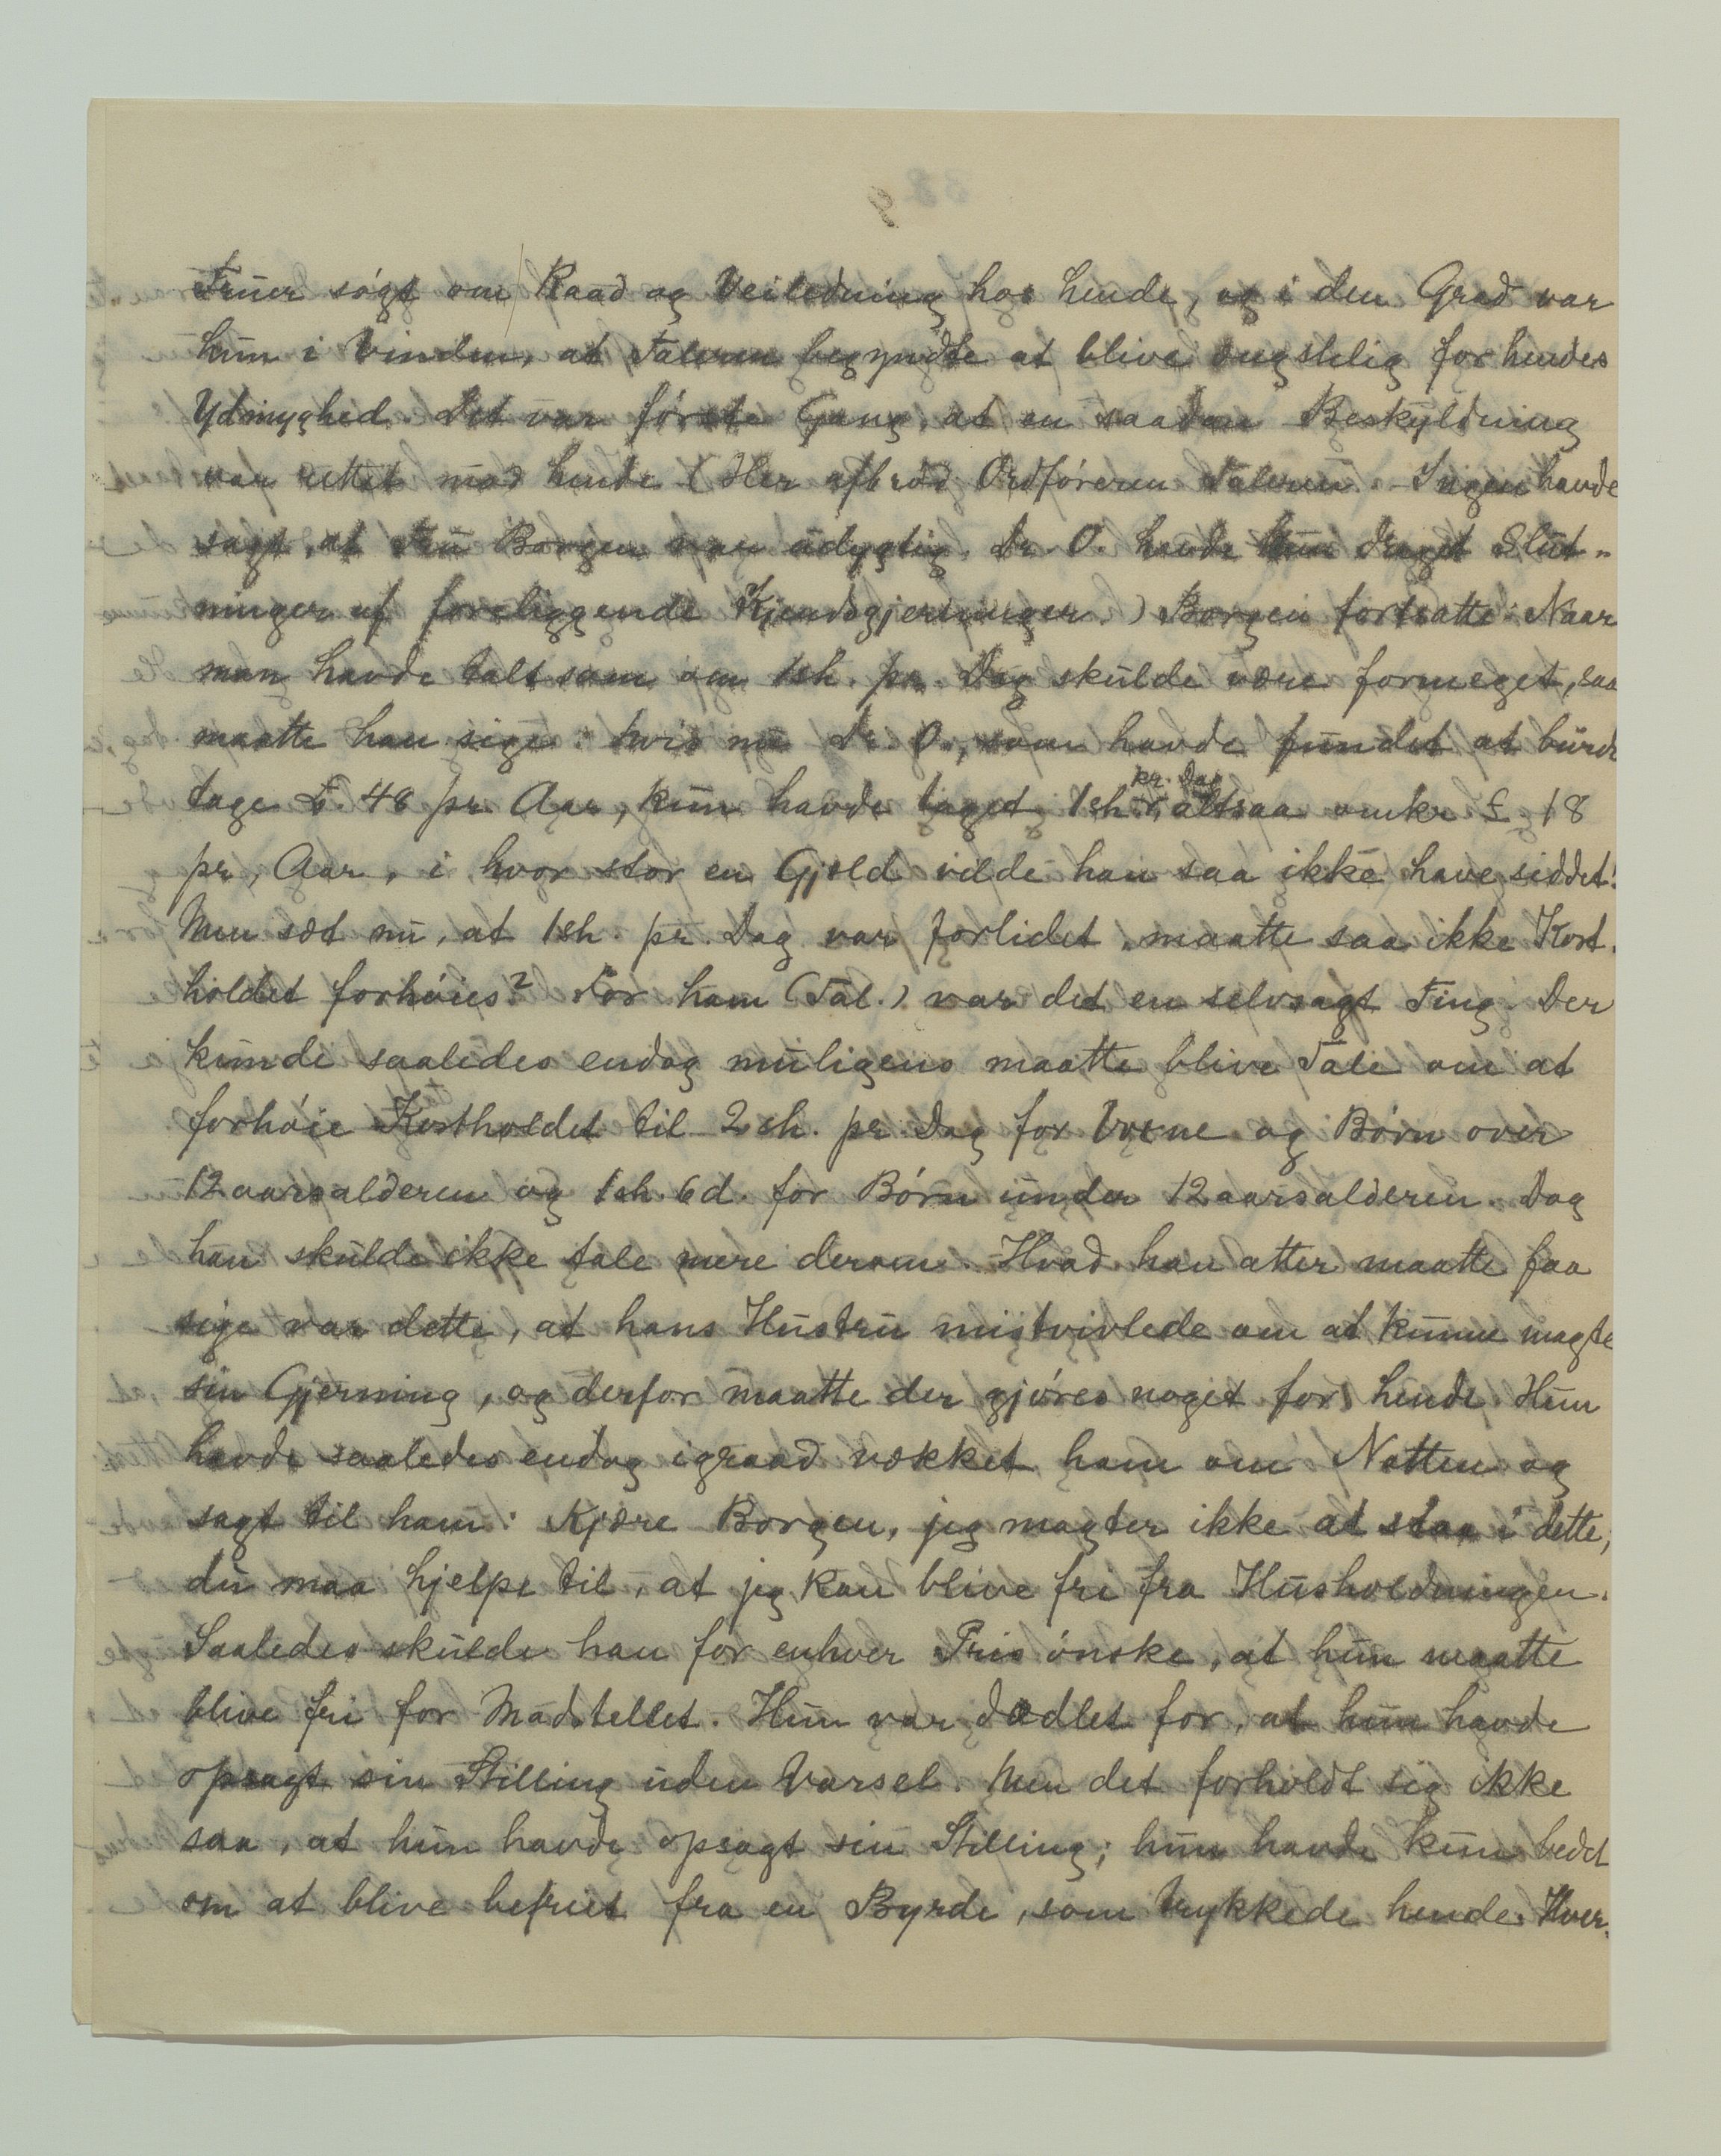 9
Fruer søgt om Raad og Veiledning hos hende, og i den Grad var
hun i Vinden, at Taleren begyndte at blive ængstelig for hendes
Ydmyghed. Det var første Gang, at en saadan Beskyldning
var rettet mod hende (Her afbrød Ordføreren Taleren. Ingen havde
sagt, at Fru Borgen var udygtig. Dr. O. havde kun draget Slut-
ninger af foreliggende Kjendsgjerninger.) Borgen fortsatte: Naar
man havde talt som om 1sh. pr. Dag skulde være formeget, saa
maatte han sige: hvis nu Dr. O., som havde fundet at burde
tage £ 48 pr. Aar, kun havde taget 1sh. pr. Dag, altsaa omkr £ 18
pr, Aar, i hvor stor en Gjeld vilde han saa ikke have siddet!
Men sæt nu, at 1sh. pr. Dag var forlidet, maatte saa ikke Kost-
holdet forhøies? For ham (Tal.) var det en selvsagt Ting. Der
kunde saaledes endog muligens maatte blive Tale om at
forhøie Kostholdet til 2 sh. pr. Dag for Voxne og Børn over
12 aarsalderen og 1sh. 6d. for Børn under 12 aarsalderen. Dog
han skulde ikke tale mere derom. Hvad han atter maatte faa
sige var dette, at hans Hustru mistvivlede om at kunne magte
sin Gjerning, og derfor maatte der gjøres noget for hende. Hun
havde saaledes endog igraad vækket ham om Natten og
sagt til ham: Kjære Borgen, jeg magter ikke at staa i dette;
du maa hjelpe til, at jeg kan blive fri fra Husholdningen.
Saaledes skulde han for enhver Pris ønske, at hun maatte
blive fri for Madstellet. Hun var dadlet for, at hun havde
opsagt sin Stilling uden Varsel. Men det forholdt sig ikke
saa, at hun havde opsagt sin Stilling; hun havde kun bedet
om at blive befriet fra en Byrde, som trykkede hende. Hver-